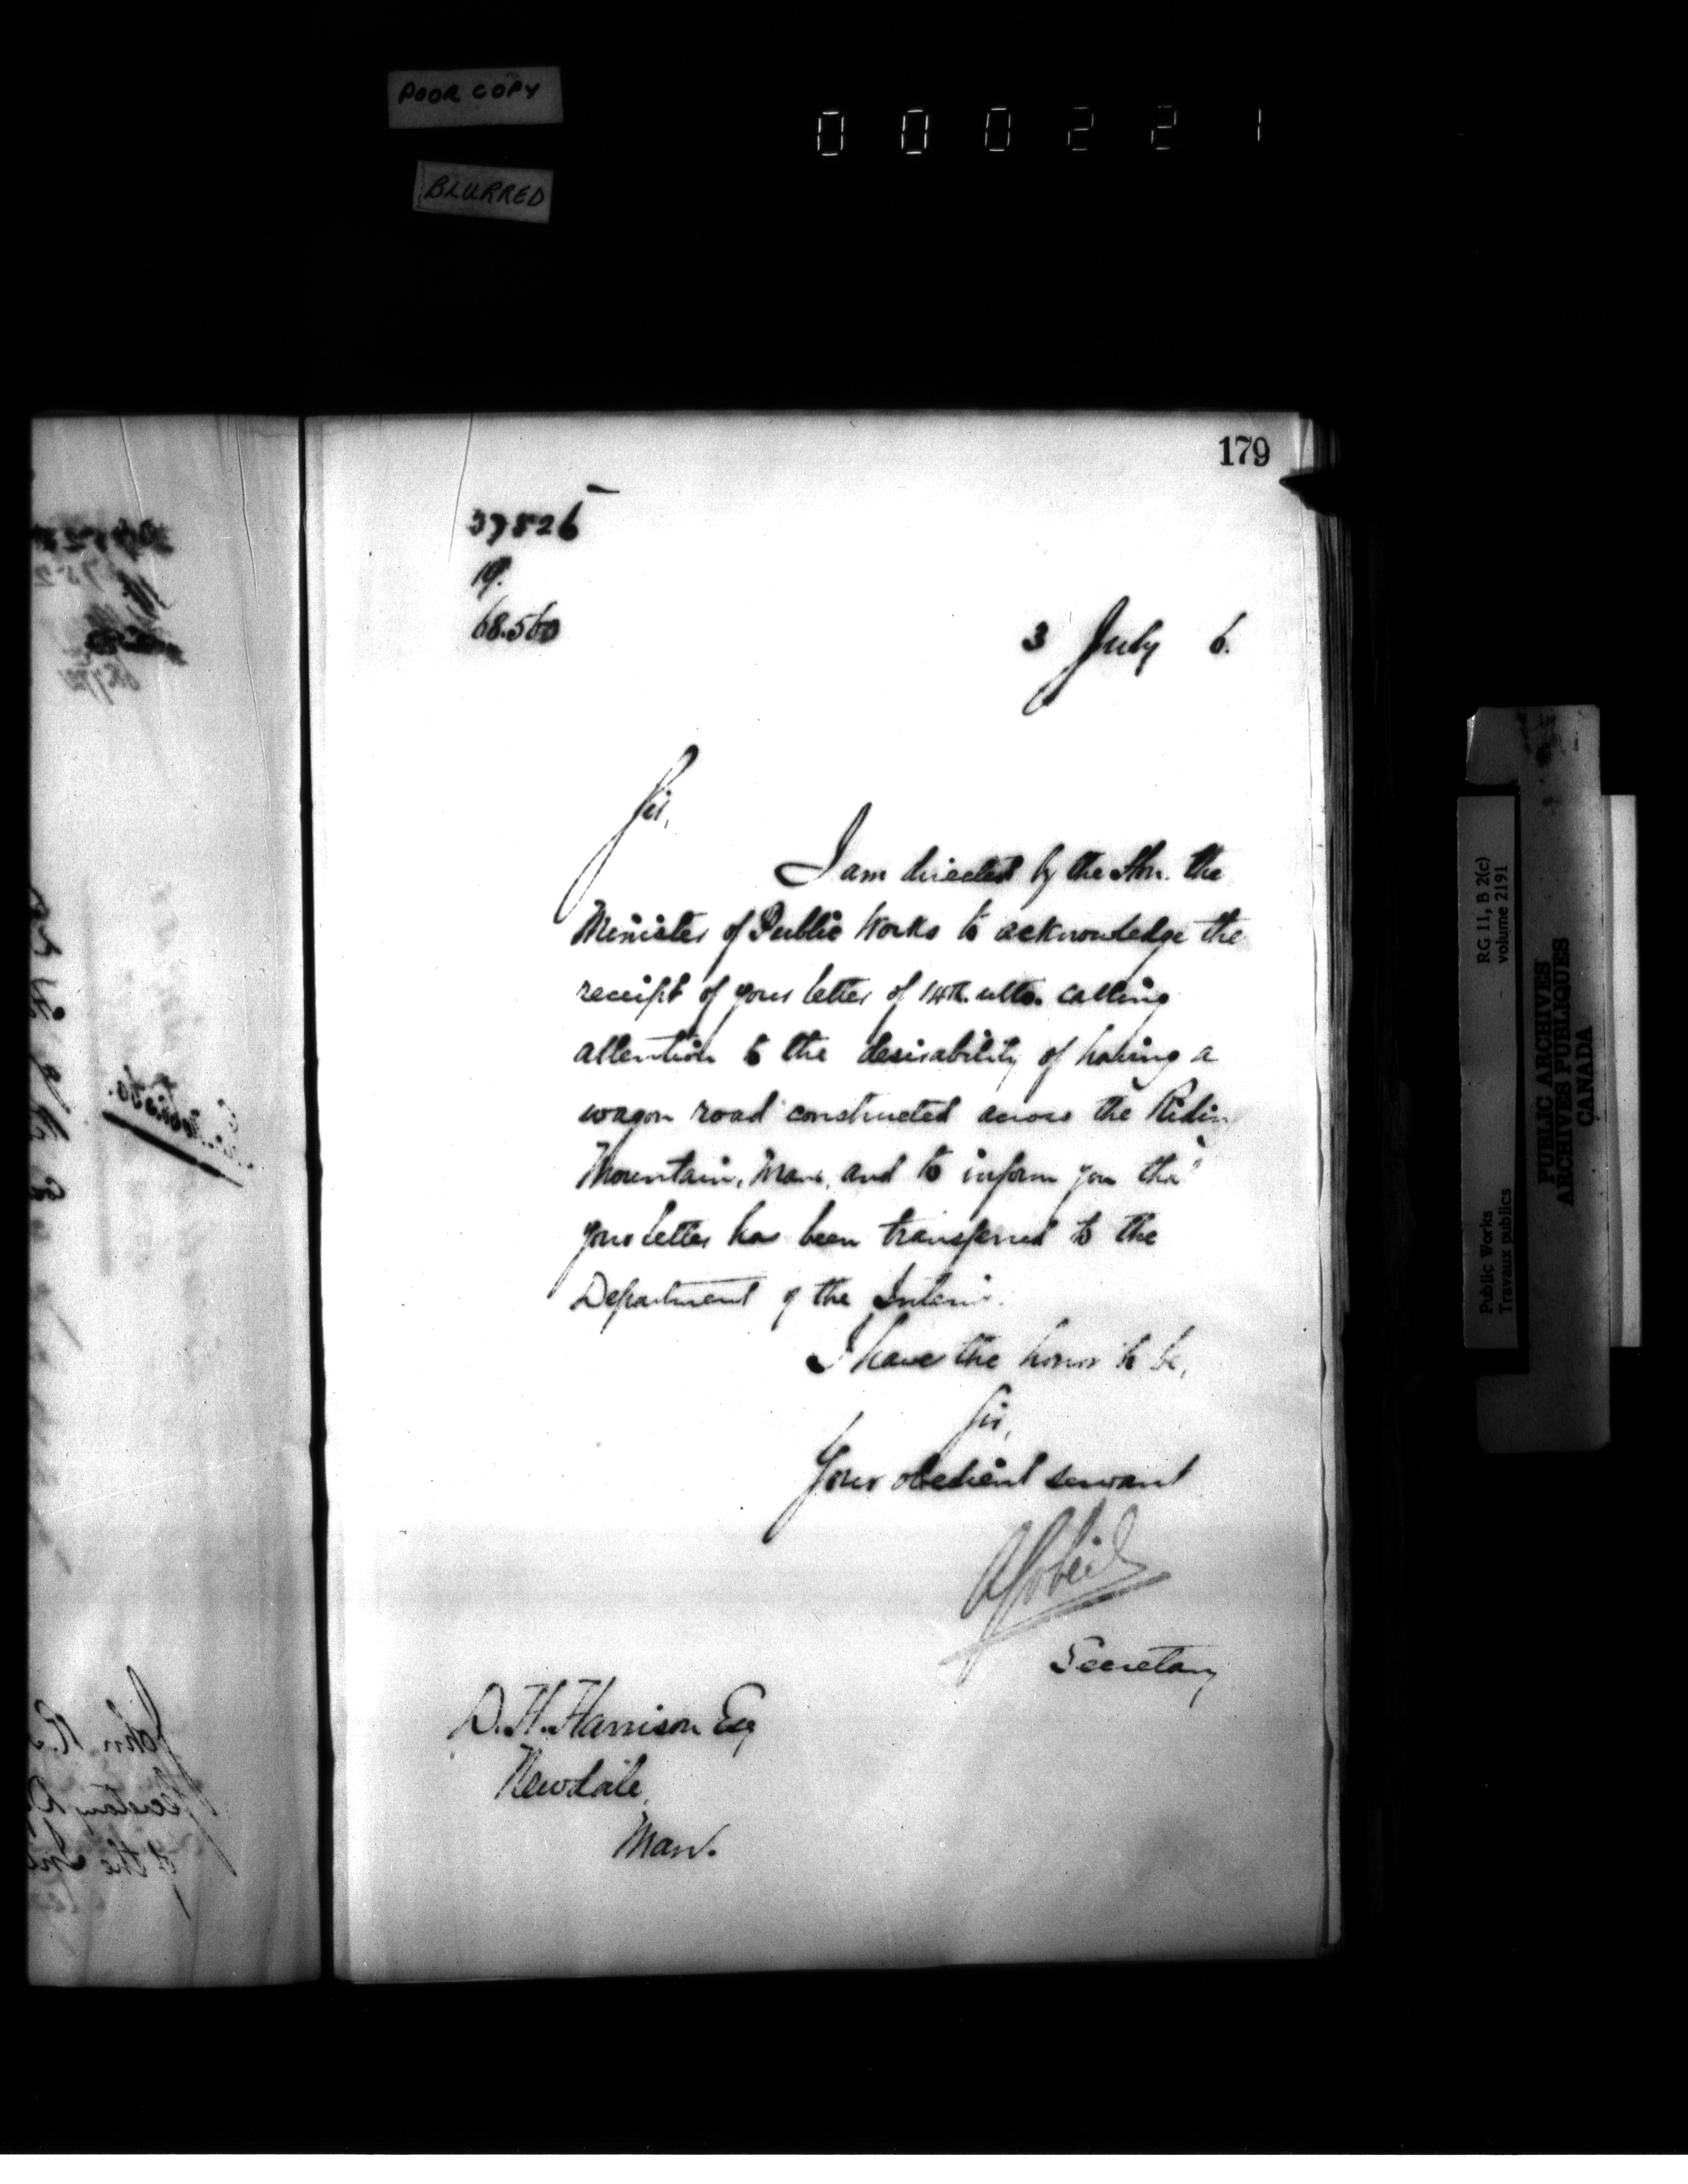 POOR COPY
000221
BLURRED
179
37526
19.
68.560
3 July 6.
Sir,
I am directed by the Hon. the
Minister of Public Works to acknowledge the
receipt of your letter of 14th. ulto. calling
attention to the desirability of having a
wagon road constructed across the Ridin
Mountain, Man. and to inform you tha
your letter has been transferred to the
Department of the Interior.
I have the honor to be,
Sir,
Your obedient servant
Secretary
D. H. Harrison Esq
Newdale,
Man.
Public Works
Travaux publics
RG 11, B 2(c)
volume 2191
PUBLIC ARCHIVES
ARCHIVES PUBLIQUES
CANADA